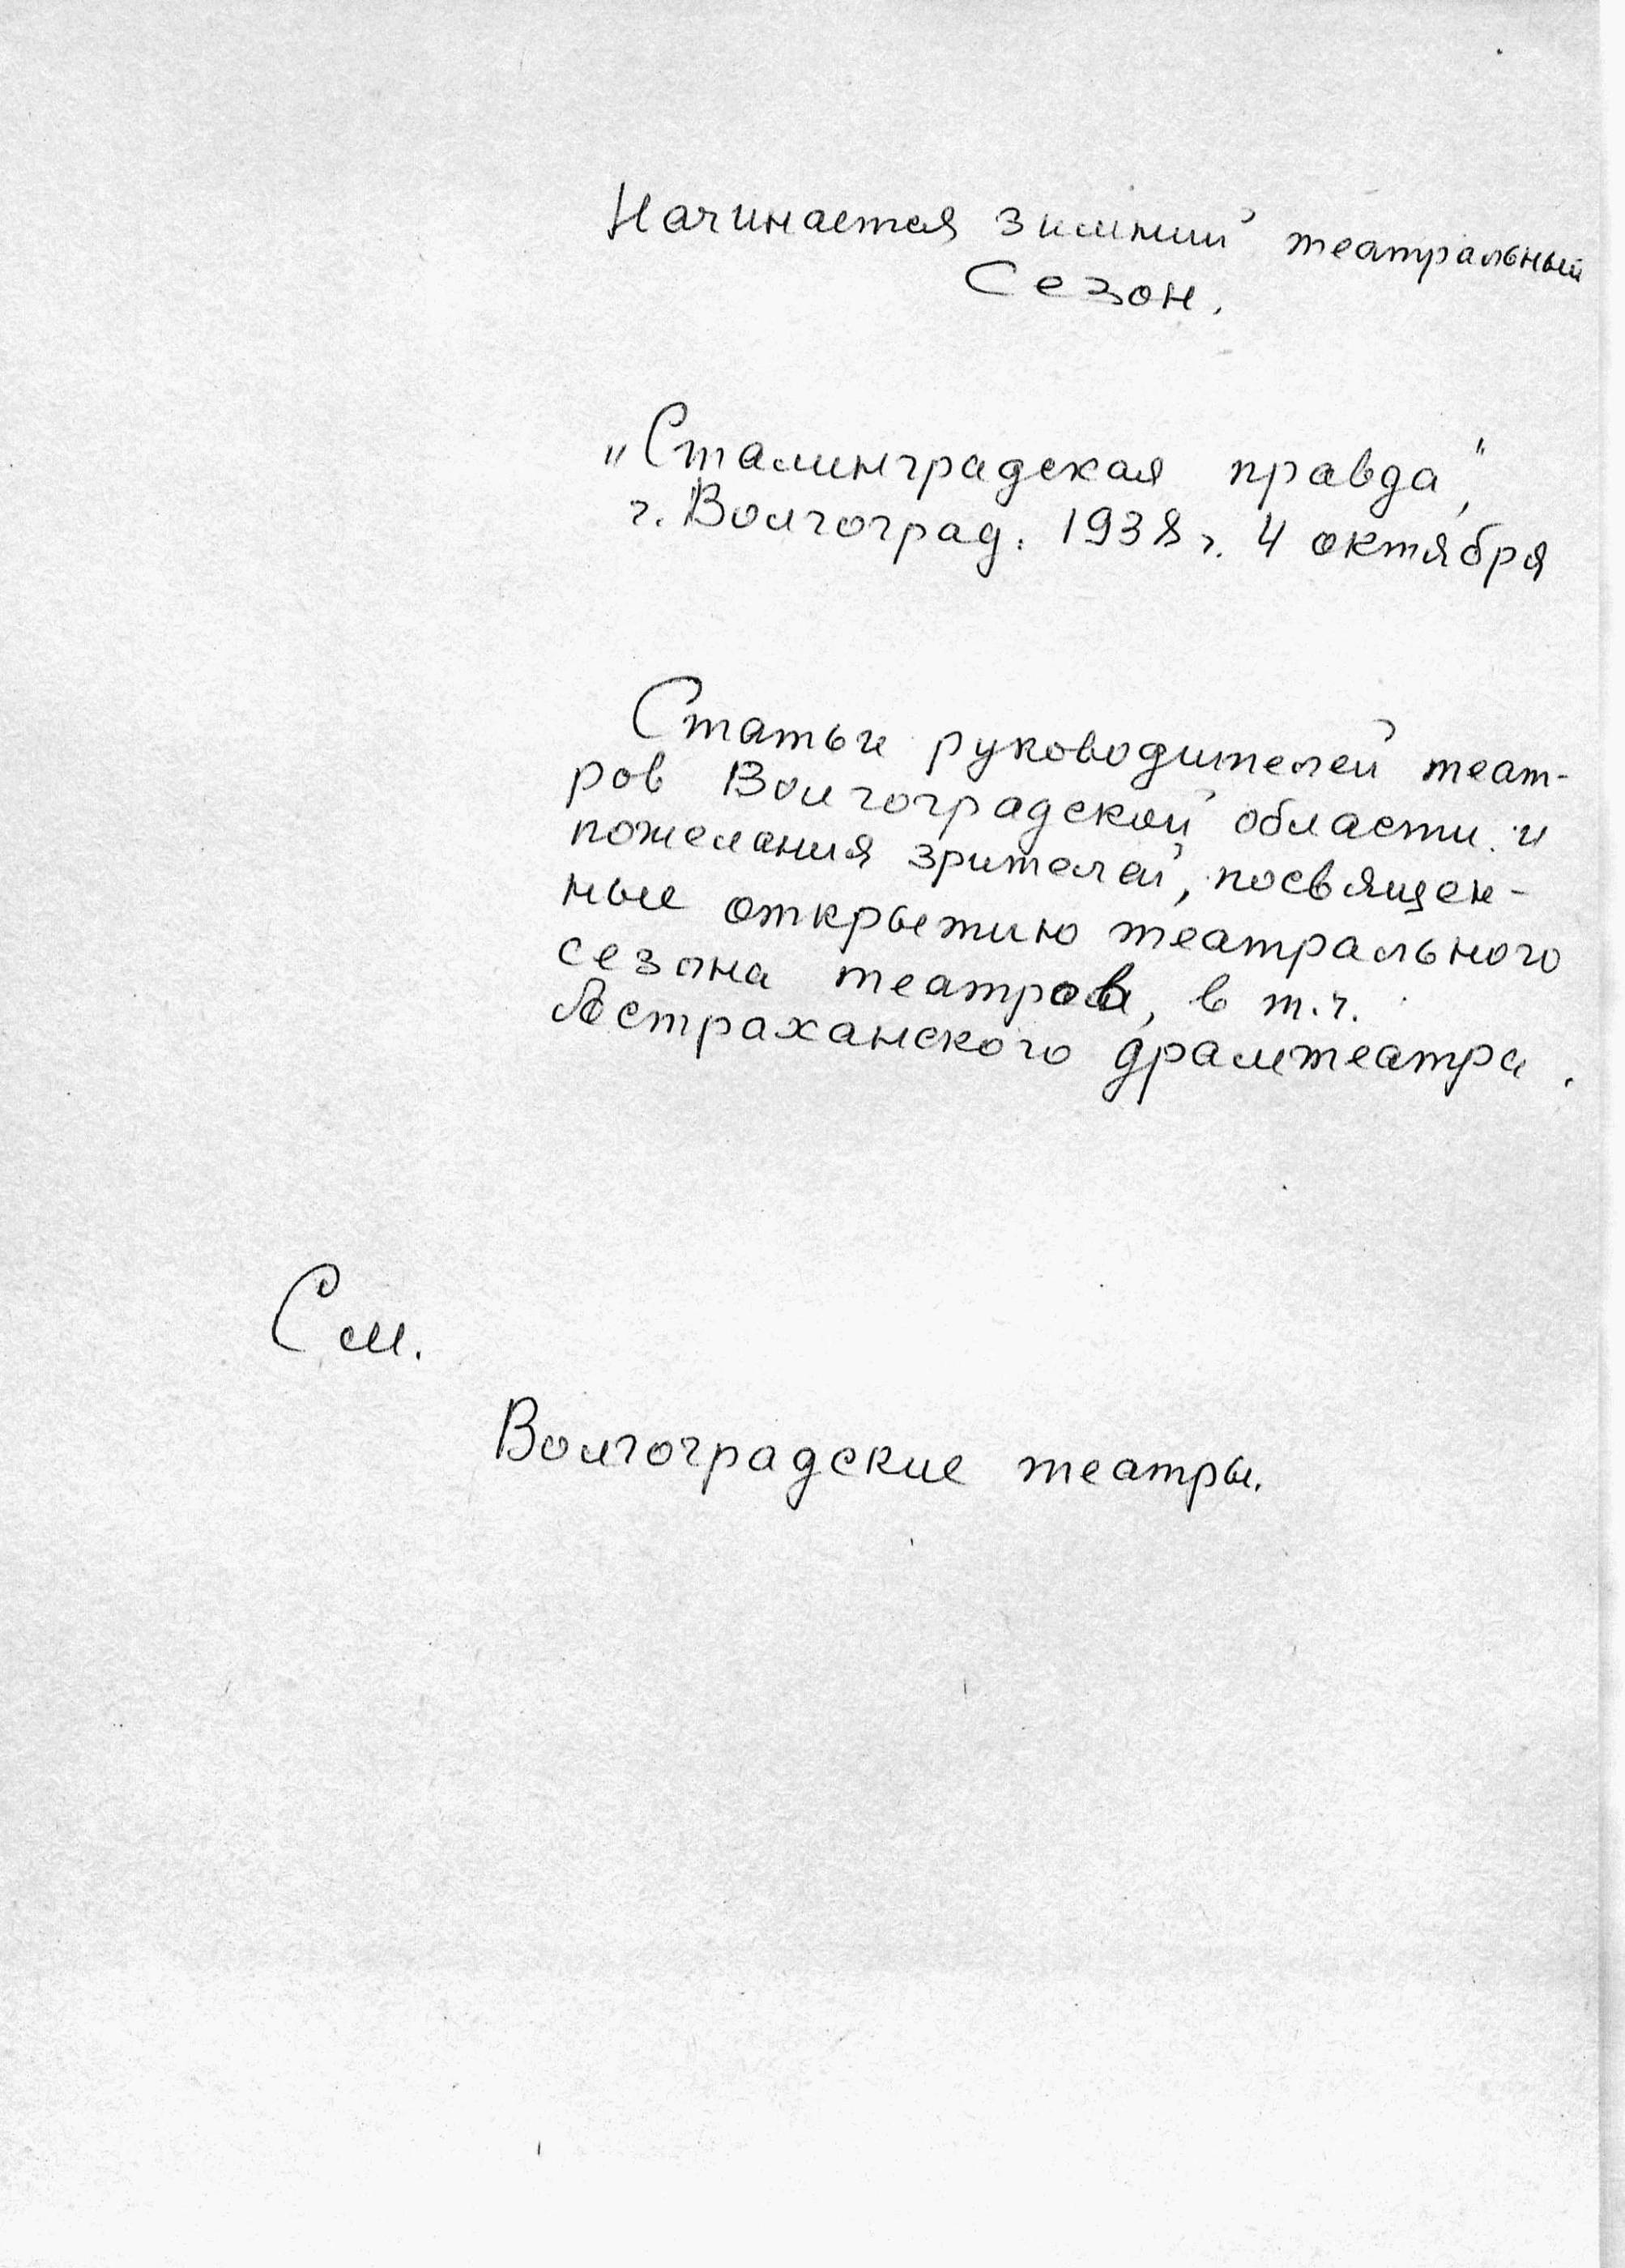 Начинается зимний театральный
Сезон.
„Сталинградская правда",
г. Волгоград. 1938 г. 4 октября
Статьи руководителей теат-
ров Волгоградской области и
пожелания зрителей, посвящен-
ные открытию театрального
сезона театров, в т.ч.
Астраханского драмтеатра.
См.
Волгоградские театры.